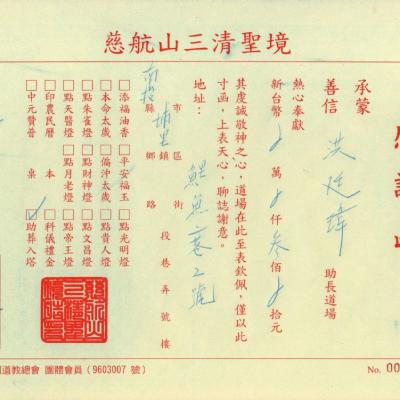 慈航山三清聖境
感謝
承蒙
善信 洪廷璋 助長道場
熱心奉獻
新台幣 萬 仟 叁 佰 拾元
其虔誠敬神之心，道場在此至表欽佩，僅以此
寸函，上表天心，聊誌謝意。
地址：
南投 縣 市
埔里 鄉 鎮 區
路 街 段 巷 弄 號 樓
鯉魚 2號
□添福油香 □平安福玉 □點光明燈
□本命太歲 □偏沖太歲 □點貴人燈
□點朱雀燈 □點財神燈 □點文昌燈
□點天醫燈 □點月老燈 □點帝王燈
□印農民曆 本 □科儀禮金
□中元贊普 桌 □助葬八塔
道教總會 團體會員（9603007 號）
No. 00